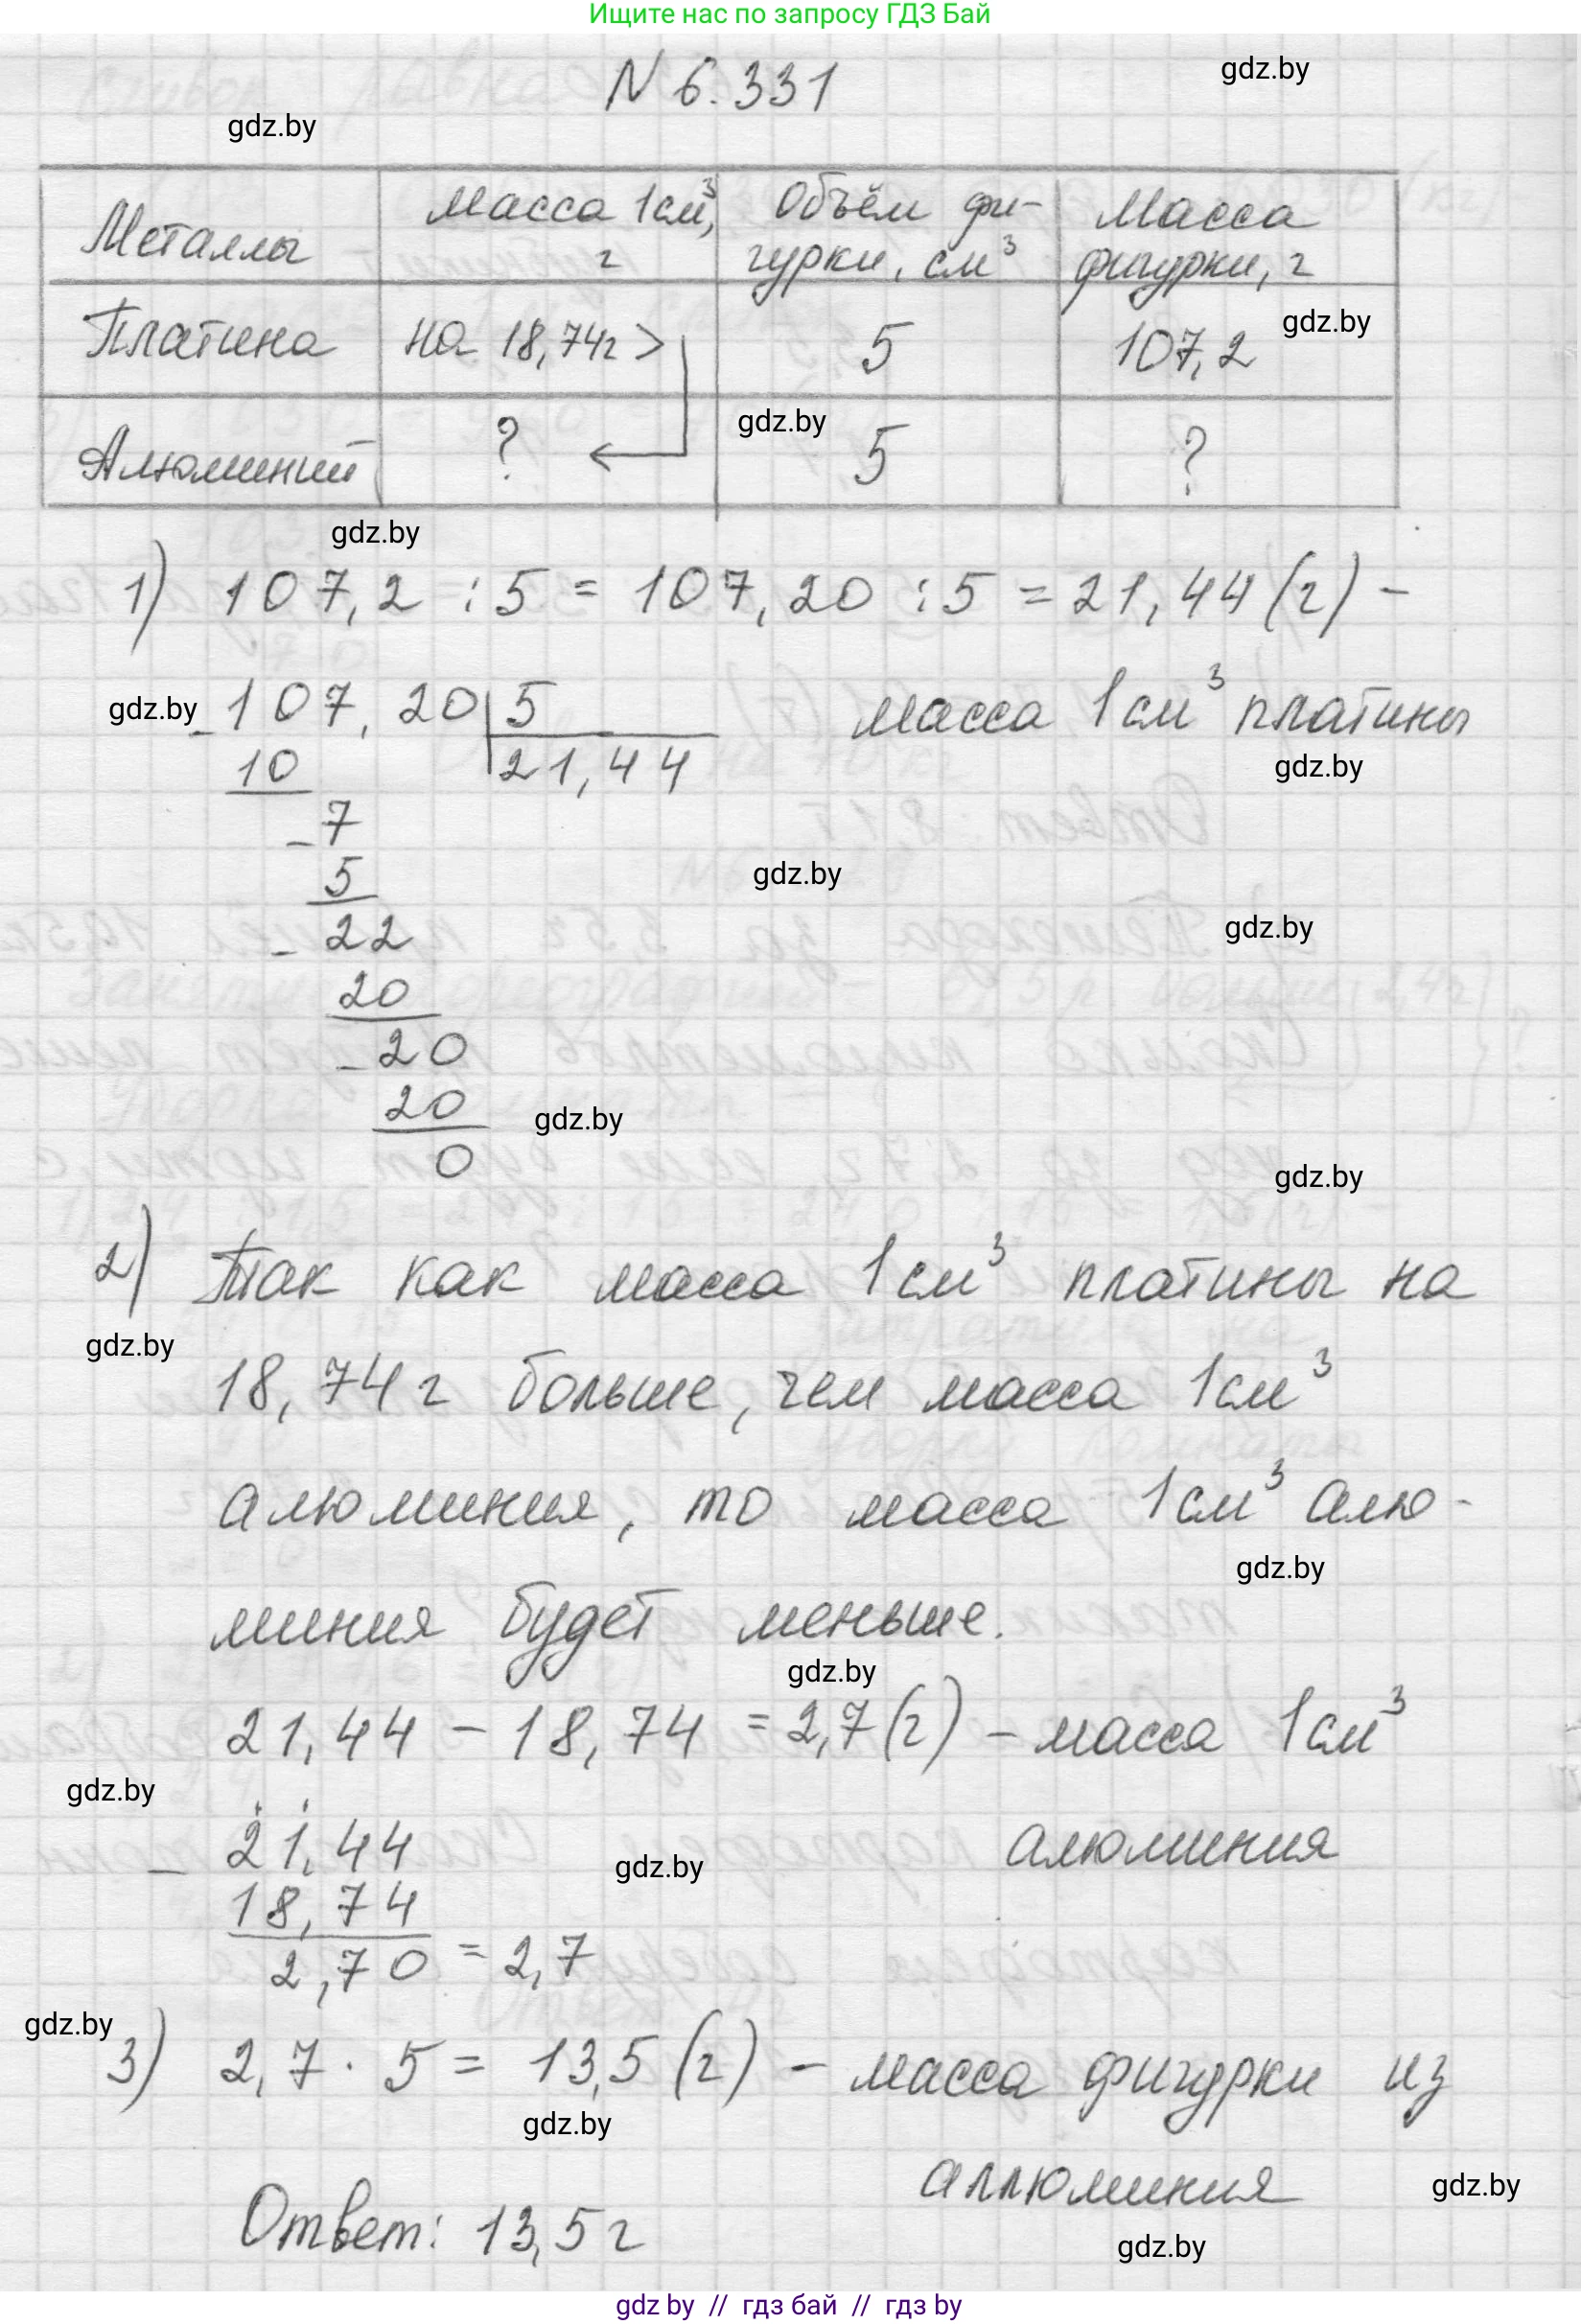 Ищите нас по запросу ГДЗ Бай
gdz.by
N 6.331
gdz.by
Металлы
масса 1см³,
г
Объём фи-
гурки, см³
Масса
фигурки, г
Платина
на 18,74г >
5
gdz.by
107,2
Алюминий
?
gdz.by
5
?
gdz.by
1) 107,2 : 5 = 107,20 : 5 = 21,44 (г) -
gdz.by
- 107,20 | 5
масса 1см³ платины
10
21,44
gdz.by
- 7
5
gdz.by
- 22
gdz.by
20
- 20
20
gdz.by
0
gdz.by
2) Так как масса 1см³ платины на
gdz.by
18,74г больше, чем масса 1см³
алюминия, то масса 1см³ алю-
gdz.by
миния будет меньше.
gdz.by
21,44 - 18,74 = 2,7 (г) - масса 1см³
gdz.by
- 21,44
алюминия
gdz.by
18,74
2,70 = 2,7
gdz.by
3) 2,7 · 5 = 13,5 (г) - масса фигурки из
gdz.by
аллюминия
gdz.by
Ответ: 13,5г
gdz.by
gdz by // гдз бай // гдз by